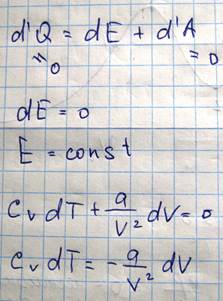 d'Q = dE + d'A
=0 =0
dE = 0
E = const
C_V dT + a/V² dV = 0
C_V dT = - a/V² dV